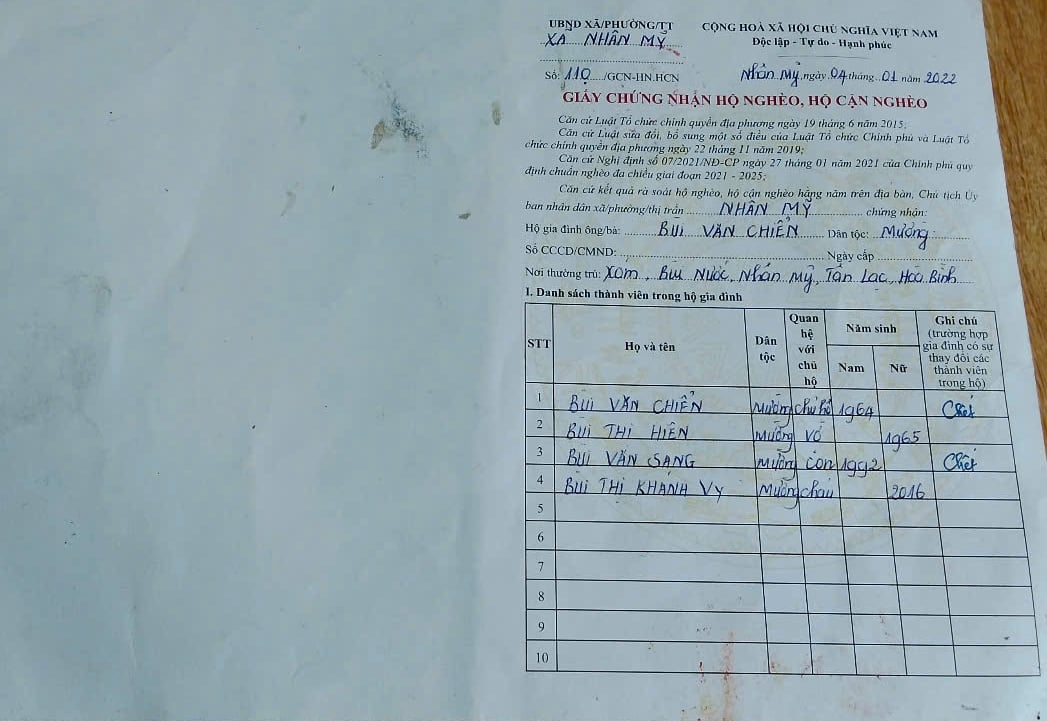 UBND XÃ/PHƯỜNG/TT
XÃ NHÂN MỸ
CỘNG HOÀ XÃ HỘI CHỦ NGHĨA VIỆT NAM
Độc lập - Tự do - Hạnh phúc
Số: 110 /GCN-HN.HCN
Nhân Mỹ, ngày 04 tháng 01 năm 2022
GIẤY CHỨNG NHẬN HỘ NGHÈO, HỘ CẬN NGHÈO
Căn cứ Luật Tổ chức chính quyền địa phương ngày 19 tháng 6 năm 2015;
Căn cứ Luật sửa đổi, bổ sung một số điều của Luật Tổ chức Chính phủ và Luật Tổ
chức chính quyền địa phương ngày 22 tháng 11 năm 2019;
Căn cứ Nghị định số 07/2021/NĐ-CP ngày 27 tháng 01 năm 2021 của Chính phủ quy
định chuẩn nghèo đa chiều giai đoạn 2021 - 2025;
Căn cứ kết quả rà soát hộ nghèo, hộ cận nghèo hằng năm trên địa bàn, Chủ tịch Ủy
ban nhân dân xã/phường/thị trấn NHÂN MỸ chứng nhận:
Hộ gia đình ông/bà: BÙI VĂN CHIẾN Dân tộc: Mường
Số CCCD/CMND: Ngày cấp
Nơi thường trú: Xóm, Bùi Nước, Nhân Mỹ, Tân Lạc, Hoà Bình
I. Danh sách thành viên trong hộ gia đình
STT
Họ và tên
Dân
tộc
Quan
hệ
với
chủ
hộ
Năm sinh
Nam
Nữ
Ghi chú
(trường hợp
gia đình có sự
thay đổi các
thành viên
trong hộ)
1 BÙI VĂN CHIẾN Mường chủ hộ 1964 Chết
2 BÙI THỊ HIỀN Mường vợ 1965
3 BÙI VĂN SANG Mường con 1992 Chết
4 BÙI THỊ KHÁNH VY Mường cháu 2016
5
6
7
8
9
10